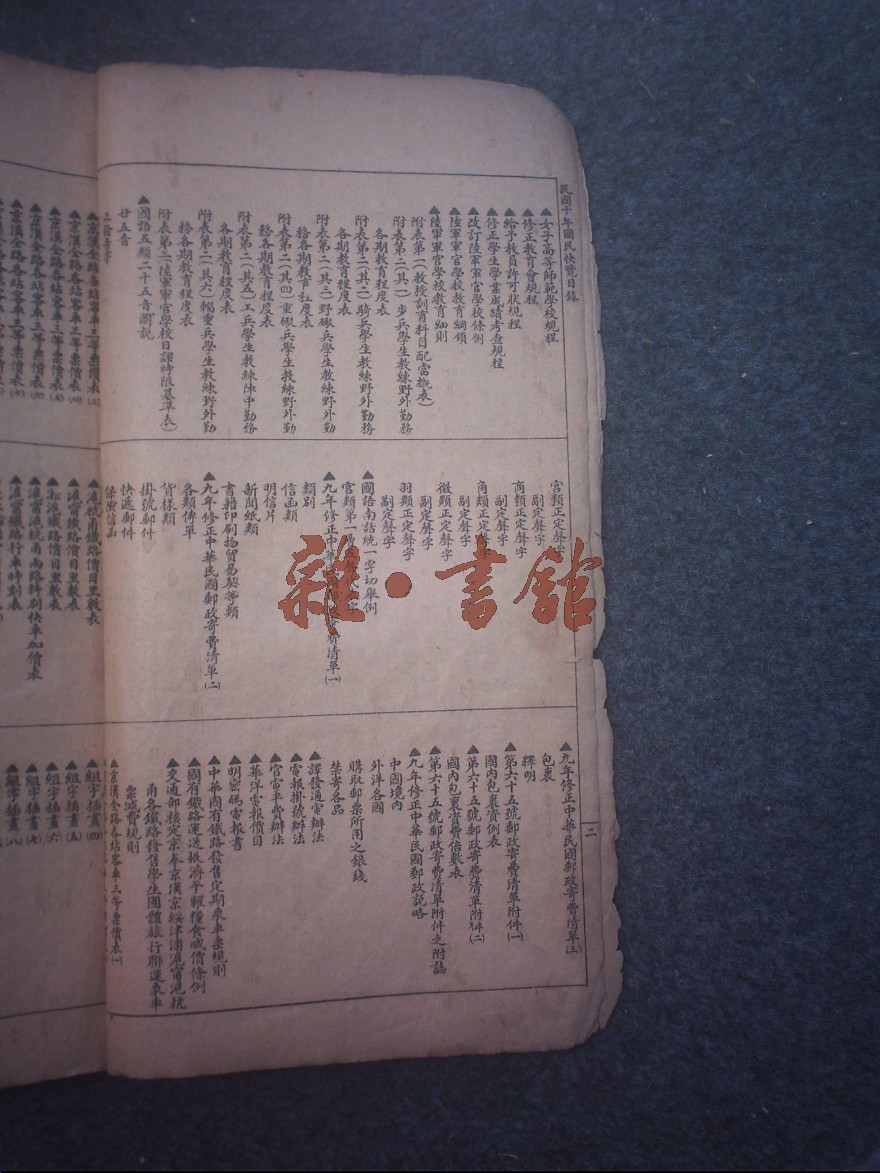 民國十年國民快覽目錄
▲女子高等師範學校規程
▲修正教育會規程
▲給予教員許可狀規程
▲修正學生學業成績考查規程
▲改訂陸軍軍官學校條例
▲陸軍軍官學校教育綱領
▲陸軍軍官學校教育細則
附表第一(教授訓育科目配當概表)
附表第二(其一)步兵學生教練野外勤務
各期教育程度表
附表第二(其二)騎兵學生教練野外勤務
各期教育程度表
附表第二(其三)野礮兵學生教練野外勤
務各期教育程度表
附表第二(其四)重礮兵學生教練野外勤
務各期教育程度表
附表第二(其五)工兵學生教練陣中勤務
各期教育程度表
附表第二(其六)輜重兵學生教練野外勤
務各期教育程度表
附表第三(陸軍軍官學校日課時限基準表)
▲國語五類二十五音圖說
廿五音
宮類正定聲字
副定聲字
商類正定聲字
副定聲字
角類正定聲字
副定聲字
徵類正定聲字
副定聲字
羽類正定聲字
副定聲字
▲國語南話統一字切舉例
宮類第一
▲九年修正中華民國郵政寄費清單(一)
類別
信函類
明信片
新聞紙類
書籍印刷物貿易契等類
▲九年修正中華民國郵政寄費清單(二)
各類傳單
貨樣類
掛號郵件
快遞郵件
保險信函
二
▲九年修正中華民國郵政寄費清單(三)
包裹
釋明
▲第六十五號郵政寄費清單附件(一)
國內包裹資例表
▲第六十五號郵政寄費清單附件(二)
國內包裹資費倍數表
▲第六十五號郵政寄費清單附件之附誌
▲九年修正中華民國郵政說略
中國境內
外洋各國
購取郵票所用之銀錢
禁寄各品
▲譯發通電辦法
▲電報掛號辦法
▲官電半費辦法
▲華洋電報價目
▲明密碼電報書
▲中華國有鐵路發售定期乘車票規則
▲國有鐵路運送振濟平糶糧食減價條例
▲交通部核定京奉京漢京綏津浦滬寧滬杭
甬各鐵路發售學生團體旅行聯運乘車
票減費規則
▲京漢全路各站客車三等票價表(一)
▲京漢全路各站客車三等票價表(三)
▲京漢全路各站客車三等票價表(四)
▲京漢全路各站客車三等票價表(五)
▲京漢全路各站客車三等票價表(六)
▲滬杭甬鐵路價目里數表
▲滬寧鐵路價目里數表
▲淞滬鐵路價目里數表
▲滬寧滬杭甬兩路特別快車加價表
▲滬寧鐵路行車時刻表
▲組字插畫(四)
▲組字插畫(五)
▲組字插畫(六)
▲組字插畫(七)
▲組字插畫(八)
雜·書館